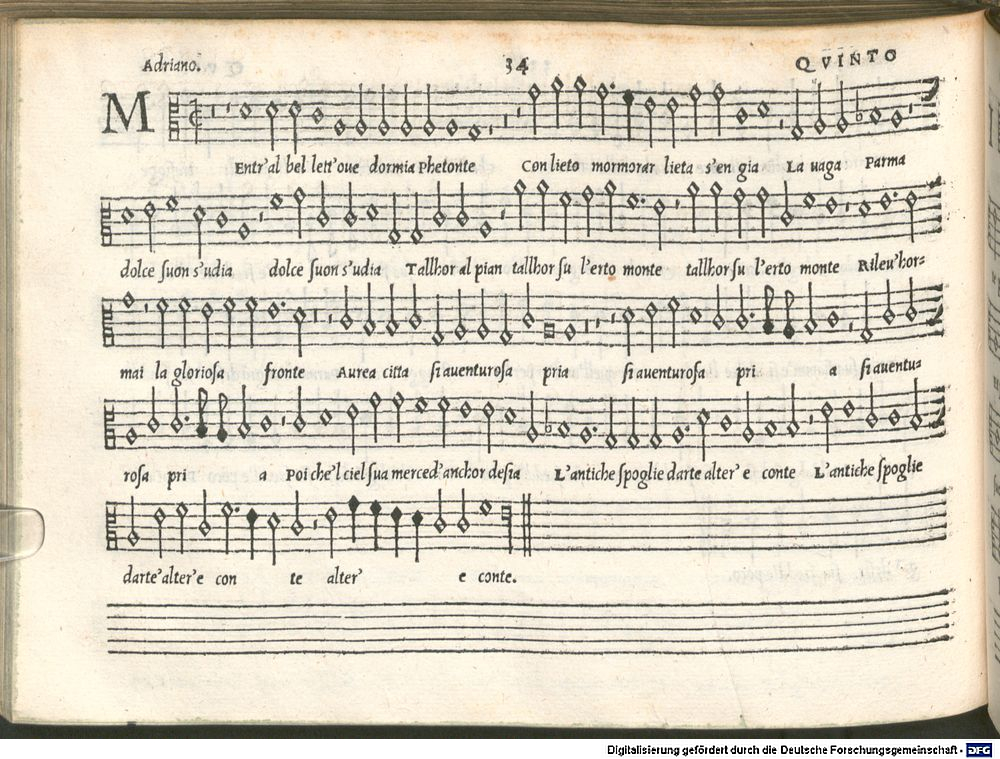 Adriano. 34 QVINTO
M Entr' al bel lett' oue dormia Phetonte Con lieto mormorar lieta s'en gia La uaga Parma
dolce suon s'udia dolce suon s'udia Tallhor al pian tallhor su l'erto monte tallhor su l'erto monte Rileu' hor-
mai la gloriosa fronte Aurea citta si auenturosa pria si auenturosa pri a si auentu-
rosa pri a Poi che'l ciel sua merced' anchor desia L'antiche spoglie darte alter' e conte L'antiche spoglie
darte' alter' e con te alter' e conte.
Digitalisierung gefördert durch die Deutsche Forschungsgemeinschaft - DFG